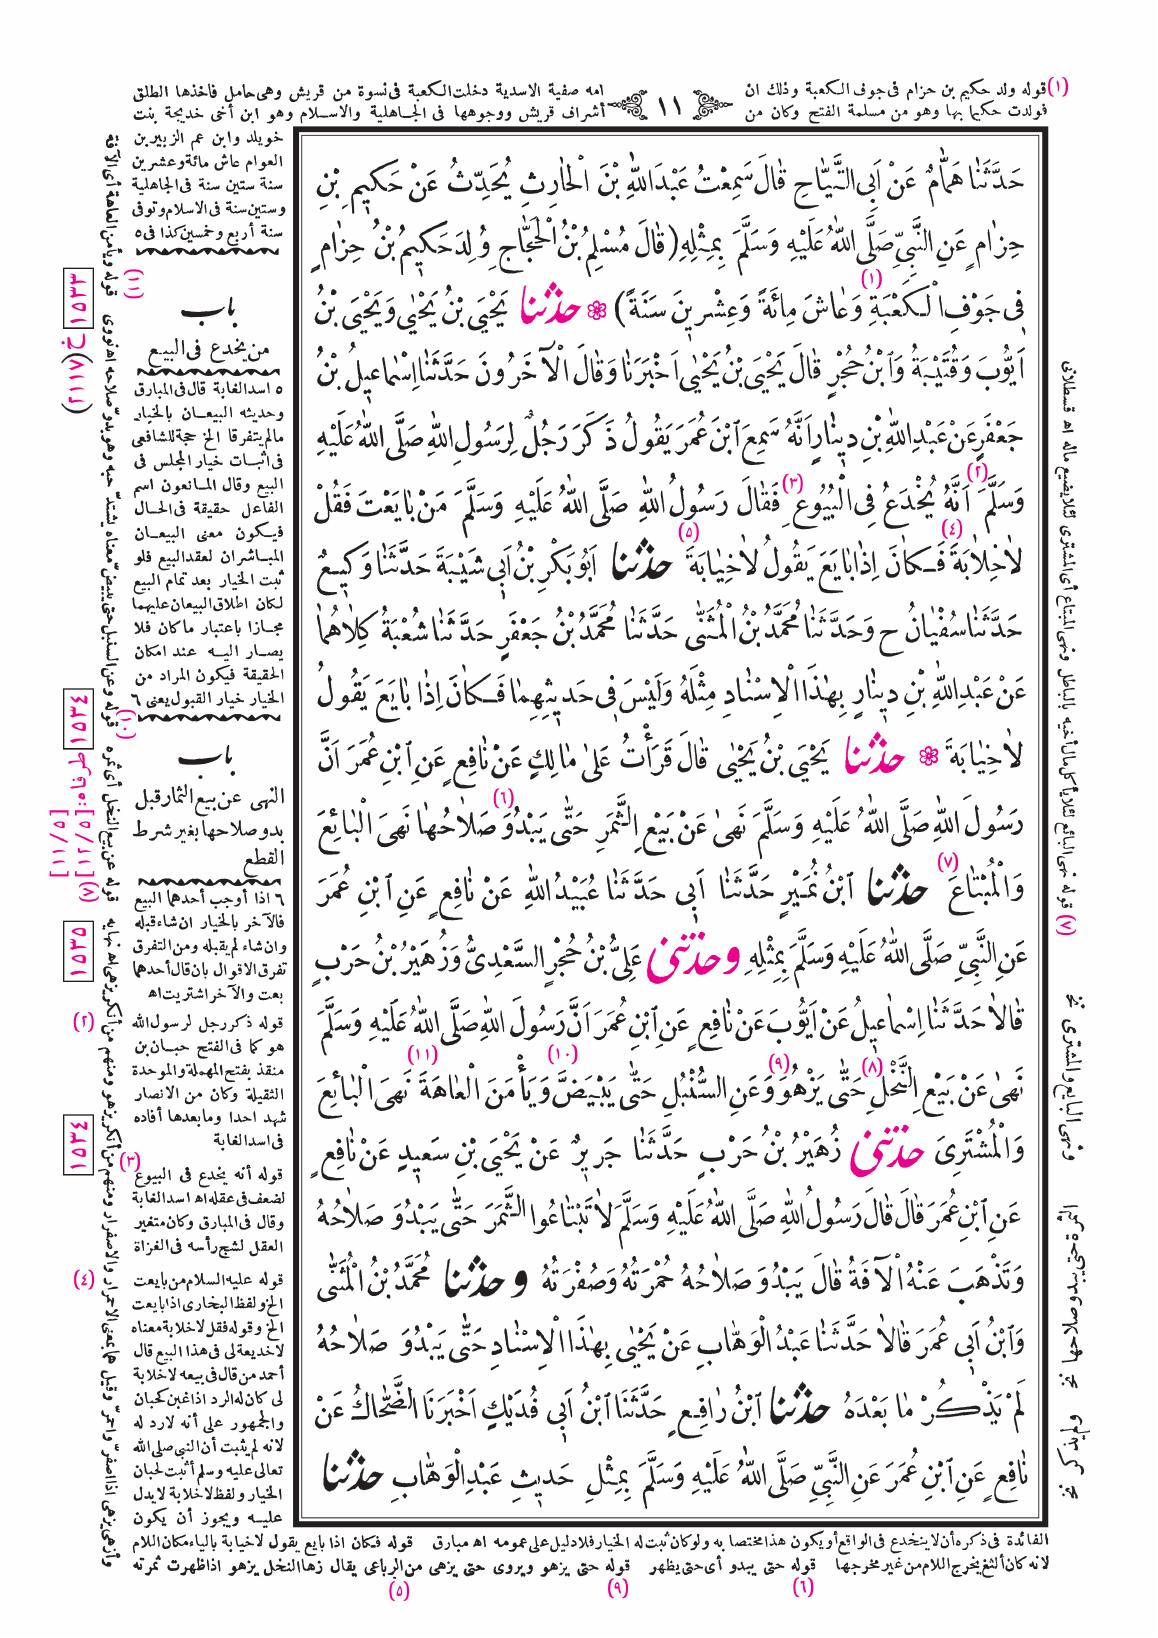 (١) قوله ولد حكيم بن حزام فى جوف الكعبة وذلك ان
فولدت حكيما بها وهو من مسلمة الفتح وكان من
١١
امه صفية الاسدية دخلت الكعبة فى نسوة من قريش وهى حامل فاخذها الطلق
أشراف قريش ووجوهها فى الجاهلية والاسلام وهو ابن أخى خديجة بنت
خويلد وابن عم الزبير بن
العوام عاش مائة وعشرين
سنة ستين سنة فى الجاهلية
وستين سنة فى الاسلام وتوفى
سنة أربع وخمسين كذا فى ٥
حَدَّثَنَا هَمَّامٌ عَنْ اَبِى التَّيَّاحِ قَالَ سَمِعْتُ عَبْدَ اللّٰهِ بْنَ الْحَارِثِ يُحَدِّثُ عَنْ حَكِيمِ بْنِ
حِزَامٍ عَنِ النَّبِىِّ صَلَّى اللّٰهُ عَلَيْهِ وَسَلَّمَ بِمِثْلِهِ (قَالَ مُسْلِمُ بْنُ الْحَجَّاجِ وُلِدَ حَكِيمُ بْنُ حِزَامٍ
فِى جَوْفِ الْكَعْبَةِ (١) وَعَاشَ مِائَةً وَعِشْرِينَ سَنَةً) ❁ حدثنا يَحْيَى بْنُ يَحْيٰى وَيَحْيَى بْنُ
اَيُّوبَ وَقُتَيْبَةُ وَابْنُ حُجْرٍ قَالَ يَحْيَى بْنُ يَحْيٰى اَخْبَرَنَا وَقَالَ الْآخَرُونَ حَدَّثَنَا اِسْمَاعِيلُ بْنُ
جَعْفَرٍ عَنْ عَبْدِ اللّٰهِ بْنِ دِينَارٍ اَنَّهُ سَمِعَ ابْنَ عُمَرَ يَقُولُ ذَكَرَ رَجُلٌ لِرَسُولِ اللّٰهِ صَلَّى اللّٰهُ عَلَيْهِ
وَسَلَّمَ (٢) اَنَّهُ يُخْدَعُ فِى الْبُيُوعِ (٣) فَقَالَ رَسُولُ اللّٰهِ صَلَّى اللّٰهُ عَلَيْهِ وَسَلَّمَ مَنْ بَايَعْتَ فَقُلْ
لَا خِلَابَةَ (٤) فَكَانَ اِذَا بَايَعَ يَقُولُ لَا خِيَابَةَ (٥) حدثنا اَبُو بَكْرِ بْنُ اَبِى شَيْبَةَ حَدَّثَنَا وَكِيعٌ
حَدَّثَنَا سُفْيَانُ ح وَحَدَّثَنَا مُحَمَّدُ بْنُ الْمُثَنّٰى حَدَّثَنَا مُحَمَّدُ بْنُ جَعْفَرٍ حَدَّثَنَا شُعْبَةُ كِلَاهُمَا
عَنْ عَبْدِ اللّٰهِ بْنِ دِينَارٍ بِهٰذَا الْاِسْنَادِ مِثْلَهُ وَلَيْسَ فِى حَدِيثِهِمَا فَكَانَ اِذَا بَايَعَ يَقُولُ
لَا خِيَابَةَ ❁ حدثنا يَحْيَى بْنُ يَحْيٰى قَالَ قَرَأْتُ عَلٰى مَالِكٍ عَنْ نَافِعٍ عَنِ ابْنِ عُمَرَ اَنَّ
رَسُولَ اللّٰهِ صَلَّى اللّٰهُ عَلَيْهِ وَسَلَّمَ نَهٰى عَنْ بَيْعِ الثَّمَرِ حَتّٰى يَبْدُوَ (٦) صَلَاحُهَا نَهَى الْبَائِعَ
وَالْمُبْتَاعَ (٧) حدثنا ابْنُ نُمَيْرٍ حَدَّثَنَا اَبِى حَدَّثَنَا عُبَيْدُ اللّٰهِ عَنْ نَافِعٍ عَنِ ابْنِ عُمَرَ
عَنِ النَّبِىِّ صَلَّى اللّٰهُ عَلَيْهِ وَسَلَّمَ بِمِثْلِهِ وحدثنى عَلِىُّ بْنُ حُجْرٍ السَّعْدِىُّ وَزُهَيْرُ بْنُ حَرْبٍ
قَالَا حَدَّثَنَا اِسْمَاعِيلُ عَنْ اَيُّوبَ عَنْ نَافِعٍ عَنِ ابْنِ عُمَرَ اَنَّ رَسُولَ اللّٰهِ صَلَّى اللّٰهُ عَلَيْهِ وَسَلَّمَ
نَهٰى عَنْ بَيْعِ النَّخْلِ (٨) حَتّٰى يَزْهُوَ (٩) وَعَنِ السُّنْبُلِ حَتّٰى يَبْيَضَّ (١٠) وَيَأْمَنَ الْعَاهَةَ (١١) نَهَى الْبَائِعَ
وَالْمُشْتَرِىَ حدثنى زُهَيْرُ بْنُ حَرْبٍ حَدَّثَنَا جَرِيرٌ عَنْ يَحْيَى بْنِ سَعِيدٍ عَنْ نَافِعٍ
عَنِ ابْنِ عُمَرَ قَالَ قَالَ رَسُولُ اللّٰهِ صَلَّى اللّٰهُ عَلَيْهِ وَسَلَّمَ لَا تَبْتَاعُوا الثَّمَرَ حَتّٰى يَبْدُوَ صَلَاحُهُ
وَتَذْهَبَ عَنْهُ الْآفَةُ قَالَ يَبْدُوَ صَلَاحُهُ حُمْرَتُهُ وَصُفْرَتُهُ وحدثنا مُحَمَّدُ بْنُ الْمُثَنّٰى
وَابْنُ اَبِى عُمَرَ قَالَا حَدَّثَنَا عَبْدُ الْوَهَّابِ عَنْ يَحْيٰى بِهٰذَا الْاِسْنَادِ حَتّٰى يَبْدُوَ صَلَاحُهُ
لَمْ يَذْكُرْ مَا بَعْدَهُ حدثنا ابْنُ رَافِعٍ حَدَّثَنَا ابْنُ اَبِى فُدَيْكٍ اَخْبَرَنَا الضَّحَّاكُ عَنْ
نَافِعٍ عَنِ ابْنِ عُمَرَ عَنِ النَّبِىِّ صَلَّى اللّٰهُ عَلَيْهِ وَسَلَّمَ بِمِثْلِ حَدِيثِ عَبْدِ الْوَهَّابِ حدثنا
باب
من يخدع فى البيع
٥ اسد الغابة قال فى المبارق
وحديثه البيعان بالخيار
مالم يتفرقا الخ حجة للشافعى
فى اثبات خيار المجلس فى
البيع وقال المانعون اسم
الفاعل حقيقة فى الحال
فيكون معنى البيعان
المباشران لعقد البيع فلو
ثبت الخيار بعد تمام البيع
لكان اطلاق البيعان عليهما
مجازا باعتبار ماكان فلا
يصار اليه عند امكان
الحقيقة فيكون المراد من
الخيار خيار القبول يعنى ٦
باب
النهى عن بيع الثمار قبل
بدو صلاحها بغير شرط
القطع
٦ اذا أوجب أحدهما البيع
فالآخر بالخيار ان شاء قبله
وان شاء لم يقبله ومن التفرق
تفرق الاقوال بان قال أحدهما
بعت والآخر اشتريت اه
(٢) قوله ذكر رجل لرسول الله
هو كما فى الفتح حبان بن
منقذ بفتح المهملة والموحدة
الثقيلة وكان من الانصار
شهد احدا وما بعدها أفاده
فى اسد الغابة
(٣) قوله أنه يخدع فى البيوع
لضعف فى عقله اه اسد الغابة
وقال فى المبارق وكان متغير
العقل لشج رأسه فى الغزاة
(٤) قوله عليه السلام من بايعت
الخ ولفظ البخارى اذا بايعت
الخ وقوله فقل لاخلابة معناه
لاخديعة لى فى هذا البيع قال
أحمد من قال فى بيعه لاخلابة
لى كان له الرد اذا غبن كحبان
والجمهور على أنه لارد له
لانه لم يثبت أن النبى صلى الله
تعالى عليه وسلم أثبت لحبان
الخيار ولفظ لاخلابة لايدل
عليه ويجوز أن يكون
الفائدة فى ذكره أن لاينخدع فى الواقع أو يكون هذا مختصا به ولو كان ثبت له الخيار فلا دليل على عمومه اه مبارق قوله فكان اذا بايع يقول لاخيابة بالياء مكان اللام
لانه كان ألثغ يخرج اللام من غير مخرجها قوله حتى يبدو أى حتى يظهر قوله حتى يزهو ويروى حتى يزهى من الرباعى يقال زها النخل يزهو اذا ظهرت ثمرته
(٥) (٩) (٦)
وأزهى يزهى اذا اصفر واحمر وقيل هما بمعنى الاحمرار والاصفرار ومنهم من أنكر يزهو ومنهم من أنكر يزهى اه نهايه قوله عن بيع النخل أى ثمره قوله وعن السنبل حتى يبيض معناه يشتد حبه وهو بدو صلاحه اه نووى قوله ويأمن العاهة أى الآفة
(١١)
(١٠)
(٨)
١٥٣٣
خ (٢١١٧)
١٥٣٤
[٥/١١]
١٥٣٥
١٥٣٤
(٧) قوله نهى البائع لئلا يأكل مال أخيه بالباطل ونهى المبتاع أى المشترى لئلا يضيع ماله اه قسطلانى
ونهى البايع والمشترى نخ